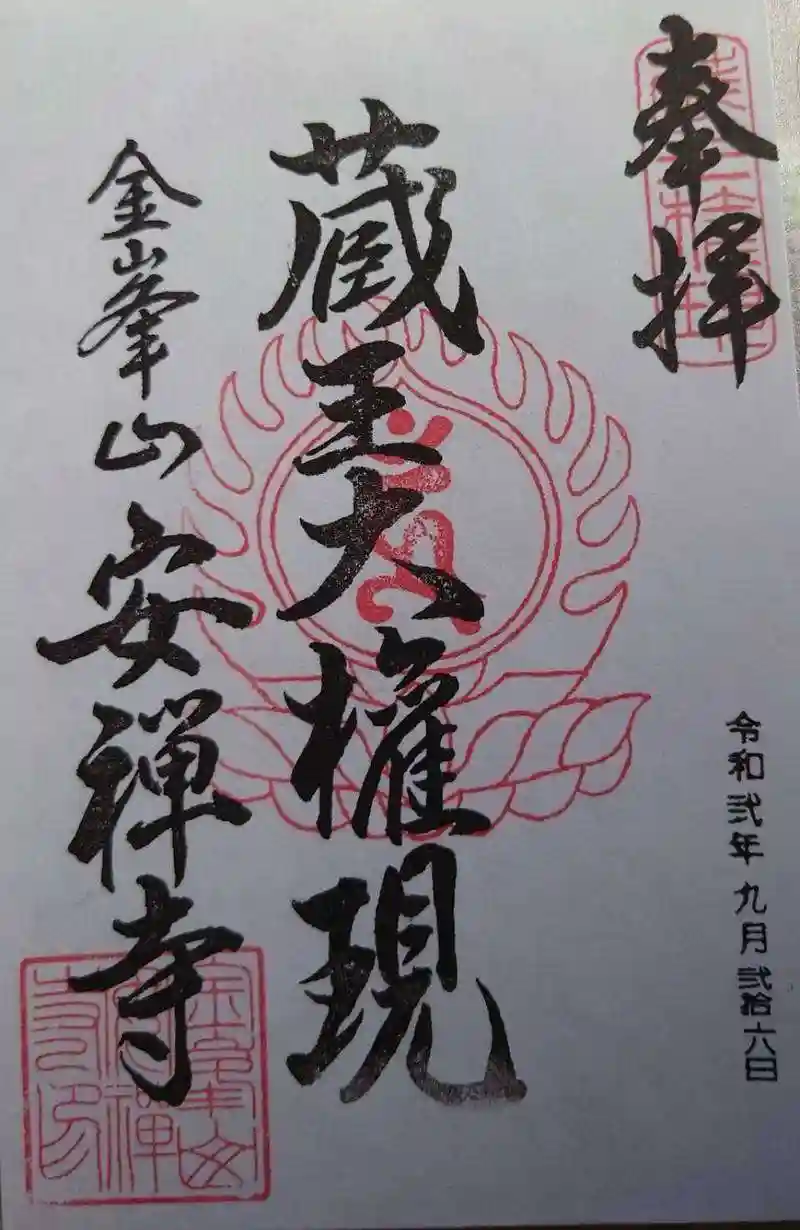 奉拝
令和弐年九月弐拾六日
蔵王大権現
金峯山安禅寺